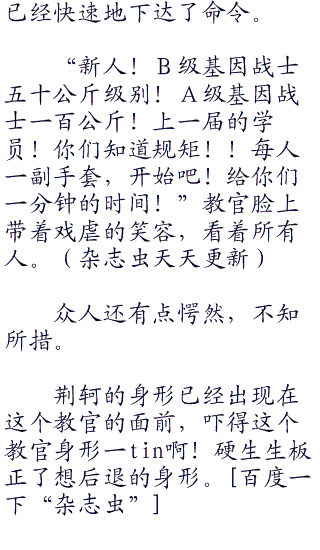 已经快速地下达了命令。
“新人！Ｂ级基因战士
五十公斤级别！Ａ级基因战
士一百公斤！上一届的学
员！你们知道规矩！！每人
一副手套，开始吧！给你们
一分钟的时间！”教官脸上
带着戏虐的笑容，看着所有
人。（杂志虫天天更新）
众人还有点愕然，不知
所措。
荆轲的身形已经出现在
这个教官的面前，吓得这个
教官身形一tin啊！硬生生板
正了想后退的身形。[百度一
下“杂志虫”]